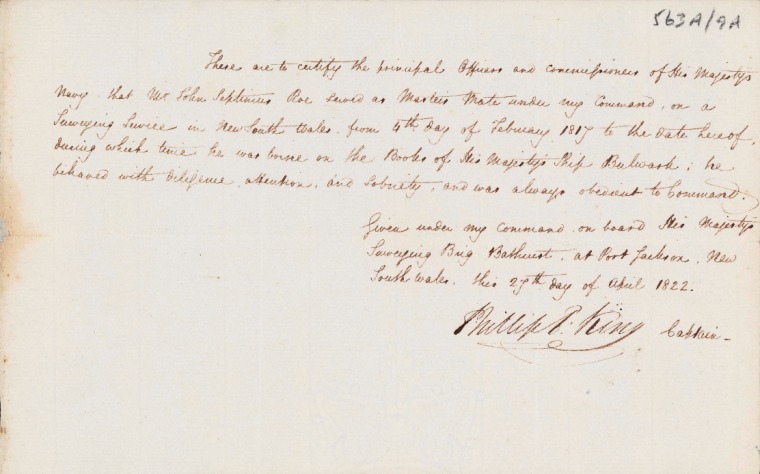 563A/9A
These are to certify the principal Officers and Commissioners of His Majestys
Navy that Mr John Septimus Roe served as Masters Mate under my Command, on a
Surveying Service in New South Wales, from 4th day of February 1817 to the date hereof,
during which time he was borne on the Books of His Majestys Ship Bulwark; he
behaved with diligence, attention, and sobriety, and was always obedient to Command.
Given under my command on board His Majestys
Surveying Brig Bathurst, at Port Jackson, New
South Wales, this 27th day of April 1822.
Phillip P. King Captain